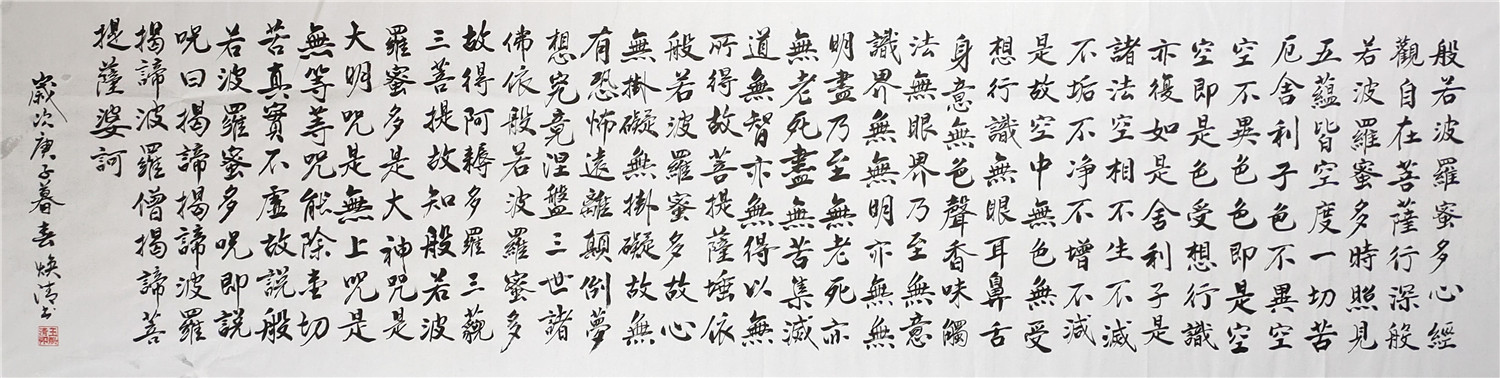 般若波羅蜜多心經
觀自在菩薩行深般
若波羅蜜多時照見
五蘊皆空度一切苦
厄舍利子色不異空
空不異色色即是空
空即是色受想行識
亦復如是舍利子是
諸法空相不生不滅
不垢不净不增不減
是故空中無色無受
想行識無眼耳鼻舌
身意無色聲香味觸
法無眼界乃至無意
識界無無明亦無無
明盡乃至無老死亦
無老死盡無苦集滅
道無智亦無得以無
所得故菩提薩埵依
般若波羅蜜多故心
無掛礙無掛礙故無
有恐怖遠離顛倒夢
想究竟涅盤三世諸
佛依般若波羅蜜多
故得阿耨多羅三藐
三菩提故知般若波
羅蜜多是大神咒是
大明咒是無上咒是
無等等咒能除壹切
苦真實不虛故説般
若波羅蜜多咒即説
咒曰揭諦揭諦波羅
揭諦波羅僧揭諦菩
提薩婆訶
歲次庚子暮春煥清书